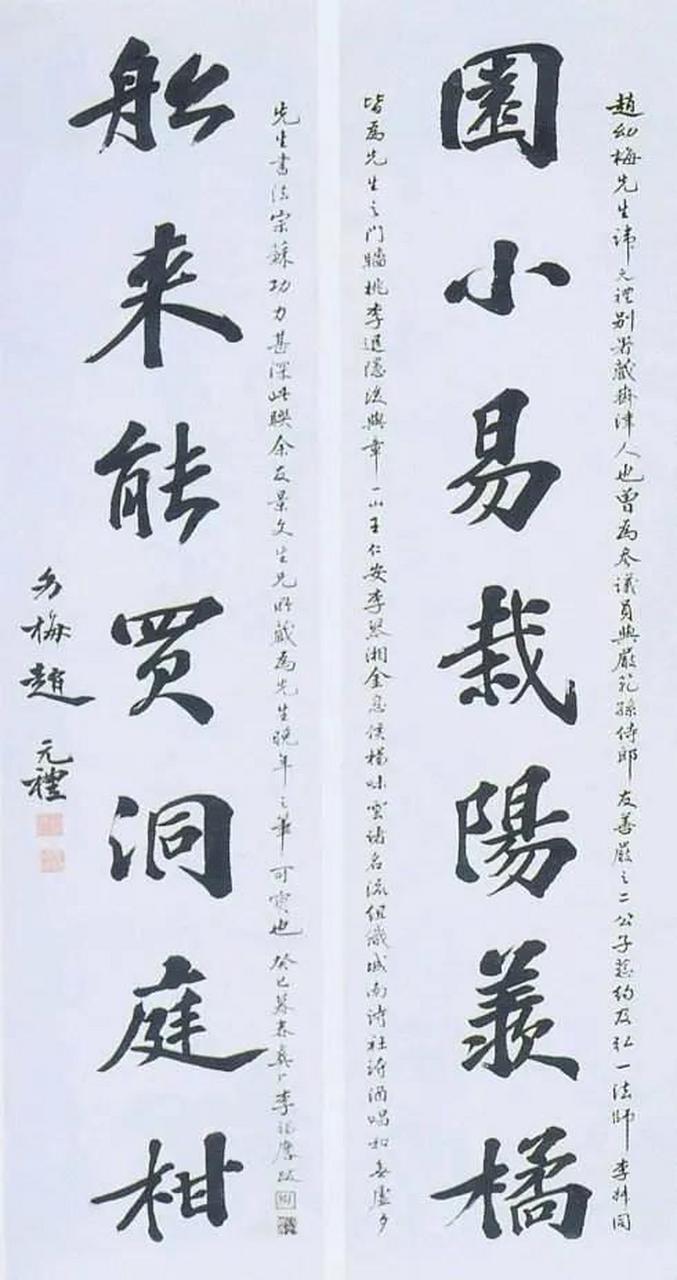 趙幼梅先生諱元禮別署藏齋津人也曾為參議員與嚴範孫侍郎友善嚴之二公子慈約及弘一法師李叔同
園小易栽陽羨橘
皆為先生之門牆桃李退隱後與章一山王仁安李琴湘金息侯楊味雲諸名流組織城南詩社詩酒唱和無虛夕
先生書法宗蘇功力甚深此聯余友景文生兄所藏為先生晚年之筆可寶也癸巳暮春龔
船来能買洞庭柑
幼梅趙元禮